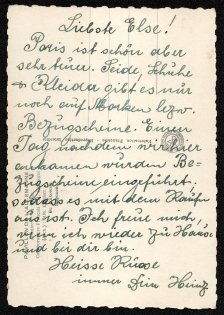 Liebste Else!
Paris ist schön aber
sehr teuer. Seide, Schuhe
+ Kleider gibt es nur
noch auf Marken bezw.
Bezugscheine. Einen
Tag nachdem wir hier
ankamen wurden Be-
zugscheine eingeführt.
sodass es mit dem Kaufen
aus ist. Ich freue mich,
wenn ich wieder zu Hause
und bei dir bin.
Heisse Küsse
immer Dein Heinz